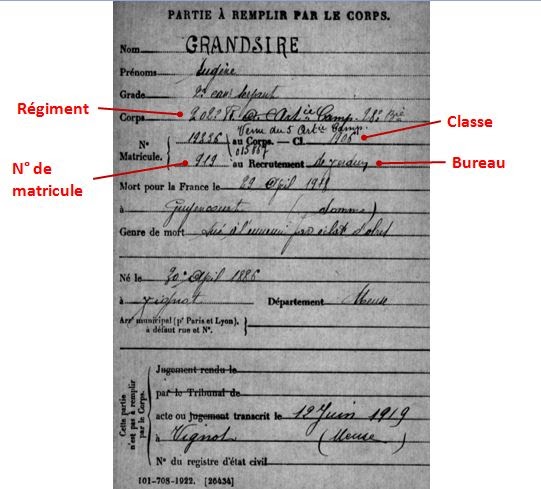 PARTIE À REMPLIR PAR LE CORPS.
Nom GRANDSIRE
Prénoms Eugène
Grade 2e can Servant
Régiment
Corps 202e Rt d'Artie Camp. 28e Bie
Venu du 5 Artie Camp.
Classe
N° Matricule. 19256 au Corps. — Cl. 1906
015867
N° de matricule
919 au Recrutement de Verdun
Bureau
Mort pour la France le 29 April 1918
à Guyencourt (Somme)
Genre de mort Tué à l'ennemi par éclat d'obus
Né le 30 April 1886
à Vignot Département Meuse
Arrt municipal (pr Paris et Lyon), à défaut rue et N°.
Cette partie n'est pas à remplir par le Corps.
Jugement rendu le
par le Tribunal de
acte ou jugement transcrit le 12 Juin 1919
à Vignot (Meuse)
N° du registre d'état civil
101-708-1922. [26434]